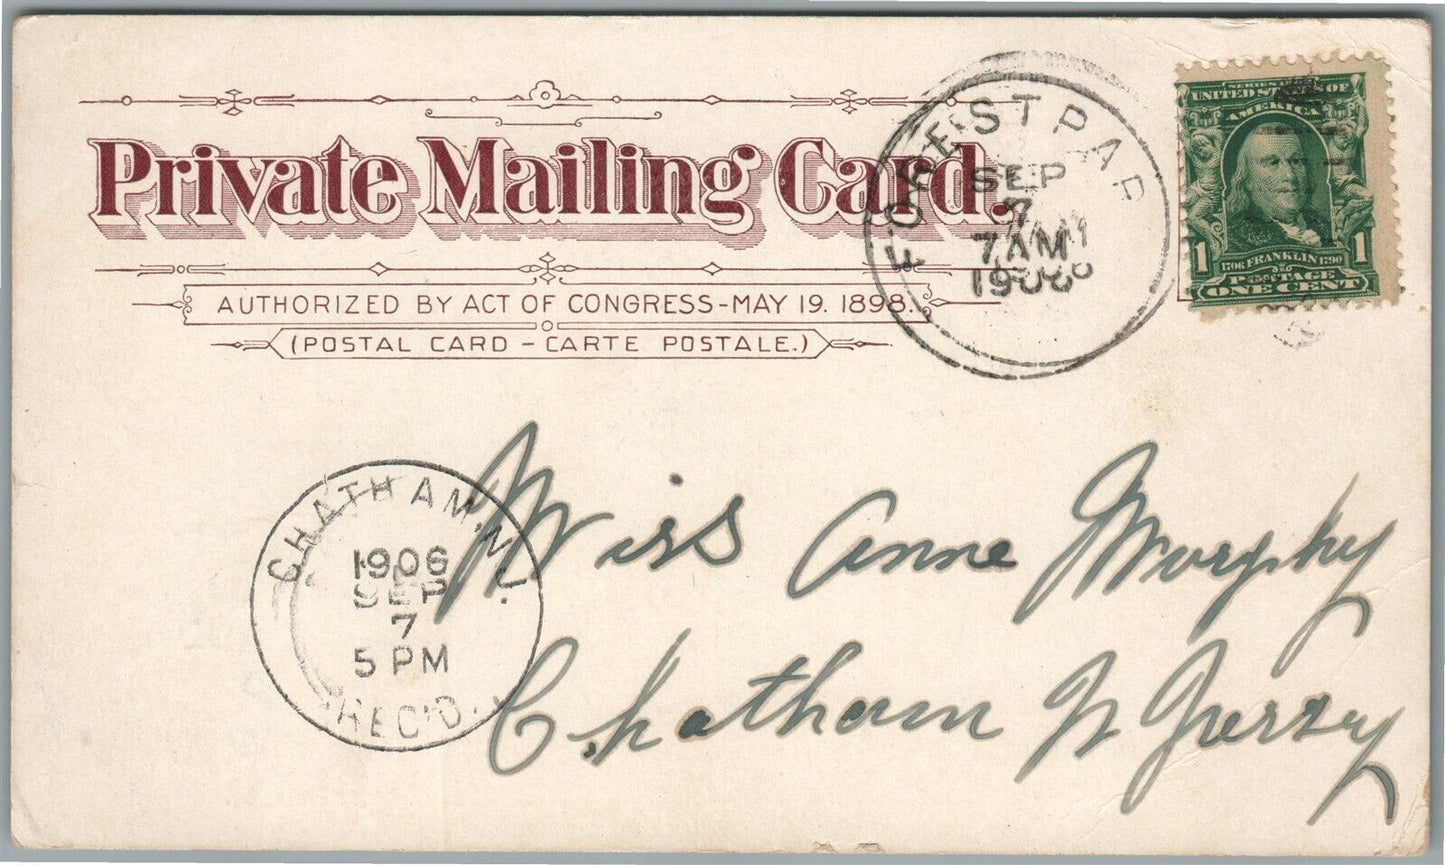 Private Mailing Card.
AUTHORIZED BY ACT OF CONGRESS-MAY 19. 1898.
(POSTAL CARD - CARTE POSTALE.)
FOREST PAR
SEP
7
7 AM
1906
UNITED STATES OF
AMERICA
1 1
1706 FRANKLIN 1790
POSTAGE
ONE CENT
CHATHAM, N.J.
1906
SEP
7
5 PM
REC'D.
Miss Anne Murphy
Chatham N Jersey